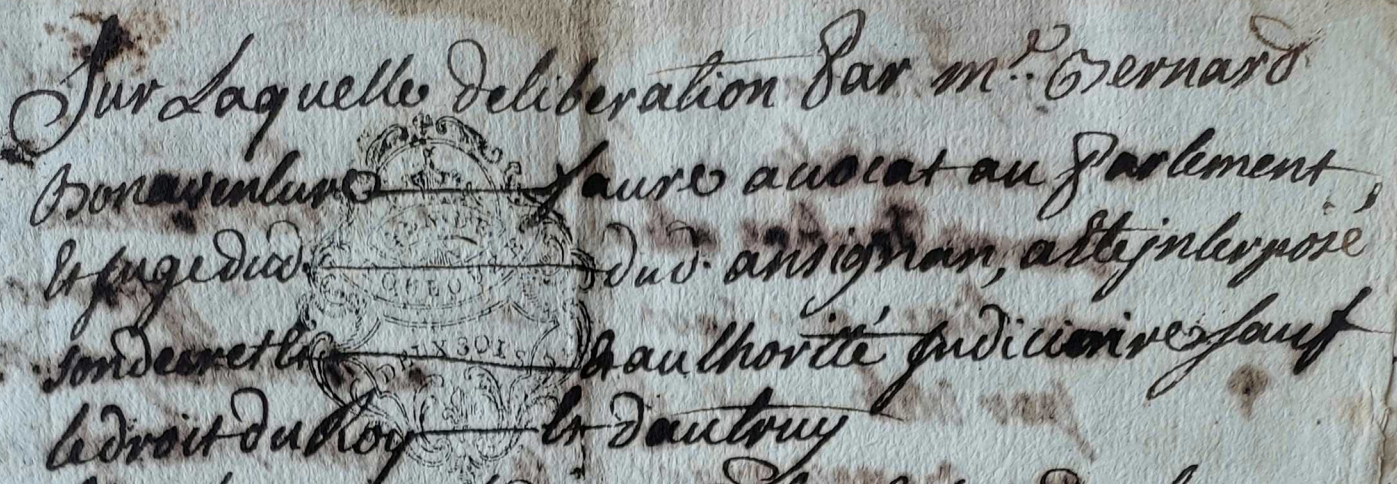 Sur Laquelle deliberation Par mr. Bernard
Bonaventure faure avocat au Parlement,
et juge dud. dud. ansignan, a été interposé
son decret et authorité judiciaire sauf
le droit du Roy et dautruy